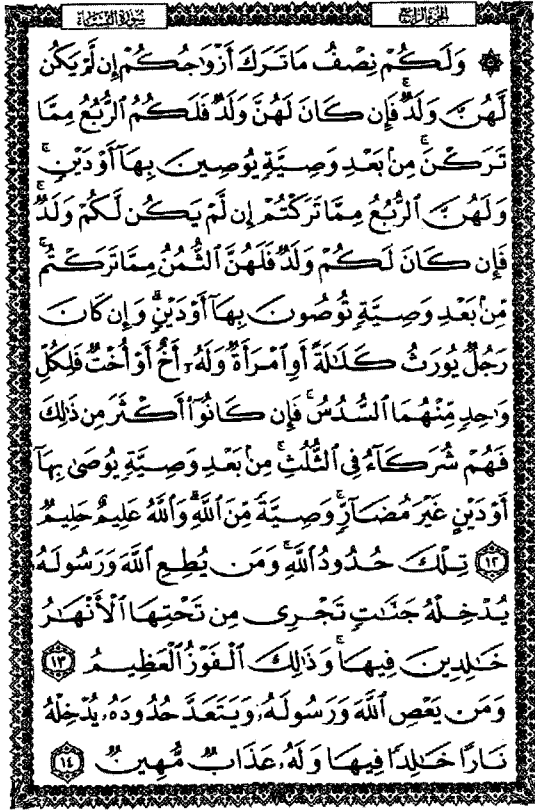 سورة النساء
الجزء الرابع
۞ وَلَكُمْ نِصْفُ مَا تَرَكَ أَزْوَٰجُكُمْ إِن لَّمْ يَكُن
لَّهُنَّ وَلَدٌ ۚ فَإِن كَانَ لَهُنَّ وَلَدٌ فَلَكُمُ ٱلرُّبُعُ مِمَّا
تَرَكْنَ ۚ مِنۢ بَعْدِ وَصِيَّةٍ يُوصِينَ بِهَآ أَوْ دَيْنٍ ۚ
وَلَهُنَّ ٱلرُّبُعُ مِمَّا تَرَكْتُمْ إِن لَّمْ يَكُن لَّكُمْ وَلَدٌ ۚ
فَإِن كَانَ لَكُمْ وَلَدٌ فَلَهُنَّ ٱلثُّمُنُ مِمَّا تَرَكْتُم ۚ
مِّنۢ بَعْدِ وَصِيَّةٍ تُوصُونَ بِهَآ أَوْ دَيْنٍ ۗ وَإِن كَانَ
رَجُلٌ يُورَثُ كَلَٰلَةً أَوِ ٱمْرَأَةٌ وَلَهُۥٓ أَخٌ أَوْ أُخْتٌ فَلِكُلِّ
وَٰحِدٍ مِّنْهُمَا ٱلسُّدُسُ ۚ فَإِن كَانُوٓا۟ أَكْثَرَ مِن ذَٰلِكَ
فَهُمْ شُرَكَآءُ فِى ٱلثُّلُثِ ۚ مِنۢ بَعْدِ وَصِيَّةٍ يُوصَىٰ بِهَآ
أَوْ دَيْنٍ غَيْرَ مُضَآرٍّ ۚ وَصِيَّةً مِّنَ ٱللَّهِ ۗ وَٱللَّهُ عَلِيمٌ حَلِيمٌ
١٢ تِلْكَ حُدُودُ ٱللَّهِ ۚ وَمَن يُطِعِ ٱللَّهَ وَرَسُولَهُۥ
يُدْخِلْهُ جَنَّٰتٍ تَجْرِى مِن تَحْتِهَا ٱلْأَنْهَٰرُ
خَٰلِدِينَ فِيهَا ۚ وَذَٰلِكَ ٱلْفَوْزُ ٱلْعَظِيمُ ١٣
وَمَن يَعْصِ ٱللَّهَ وَرَسُولَهُۥ وَيَتَعَدَّ حُدُودَهُۥ يُدْخِلْهُ
نَارًا خَٰلِدًا فِيهَا وَلَهُۥ عَذَابٌ مُّهِينٌ ١٤